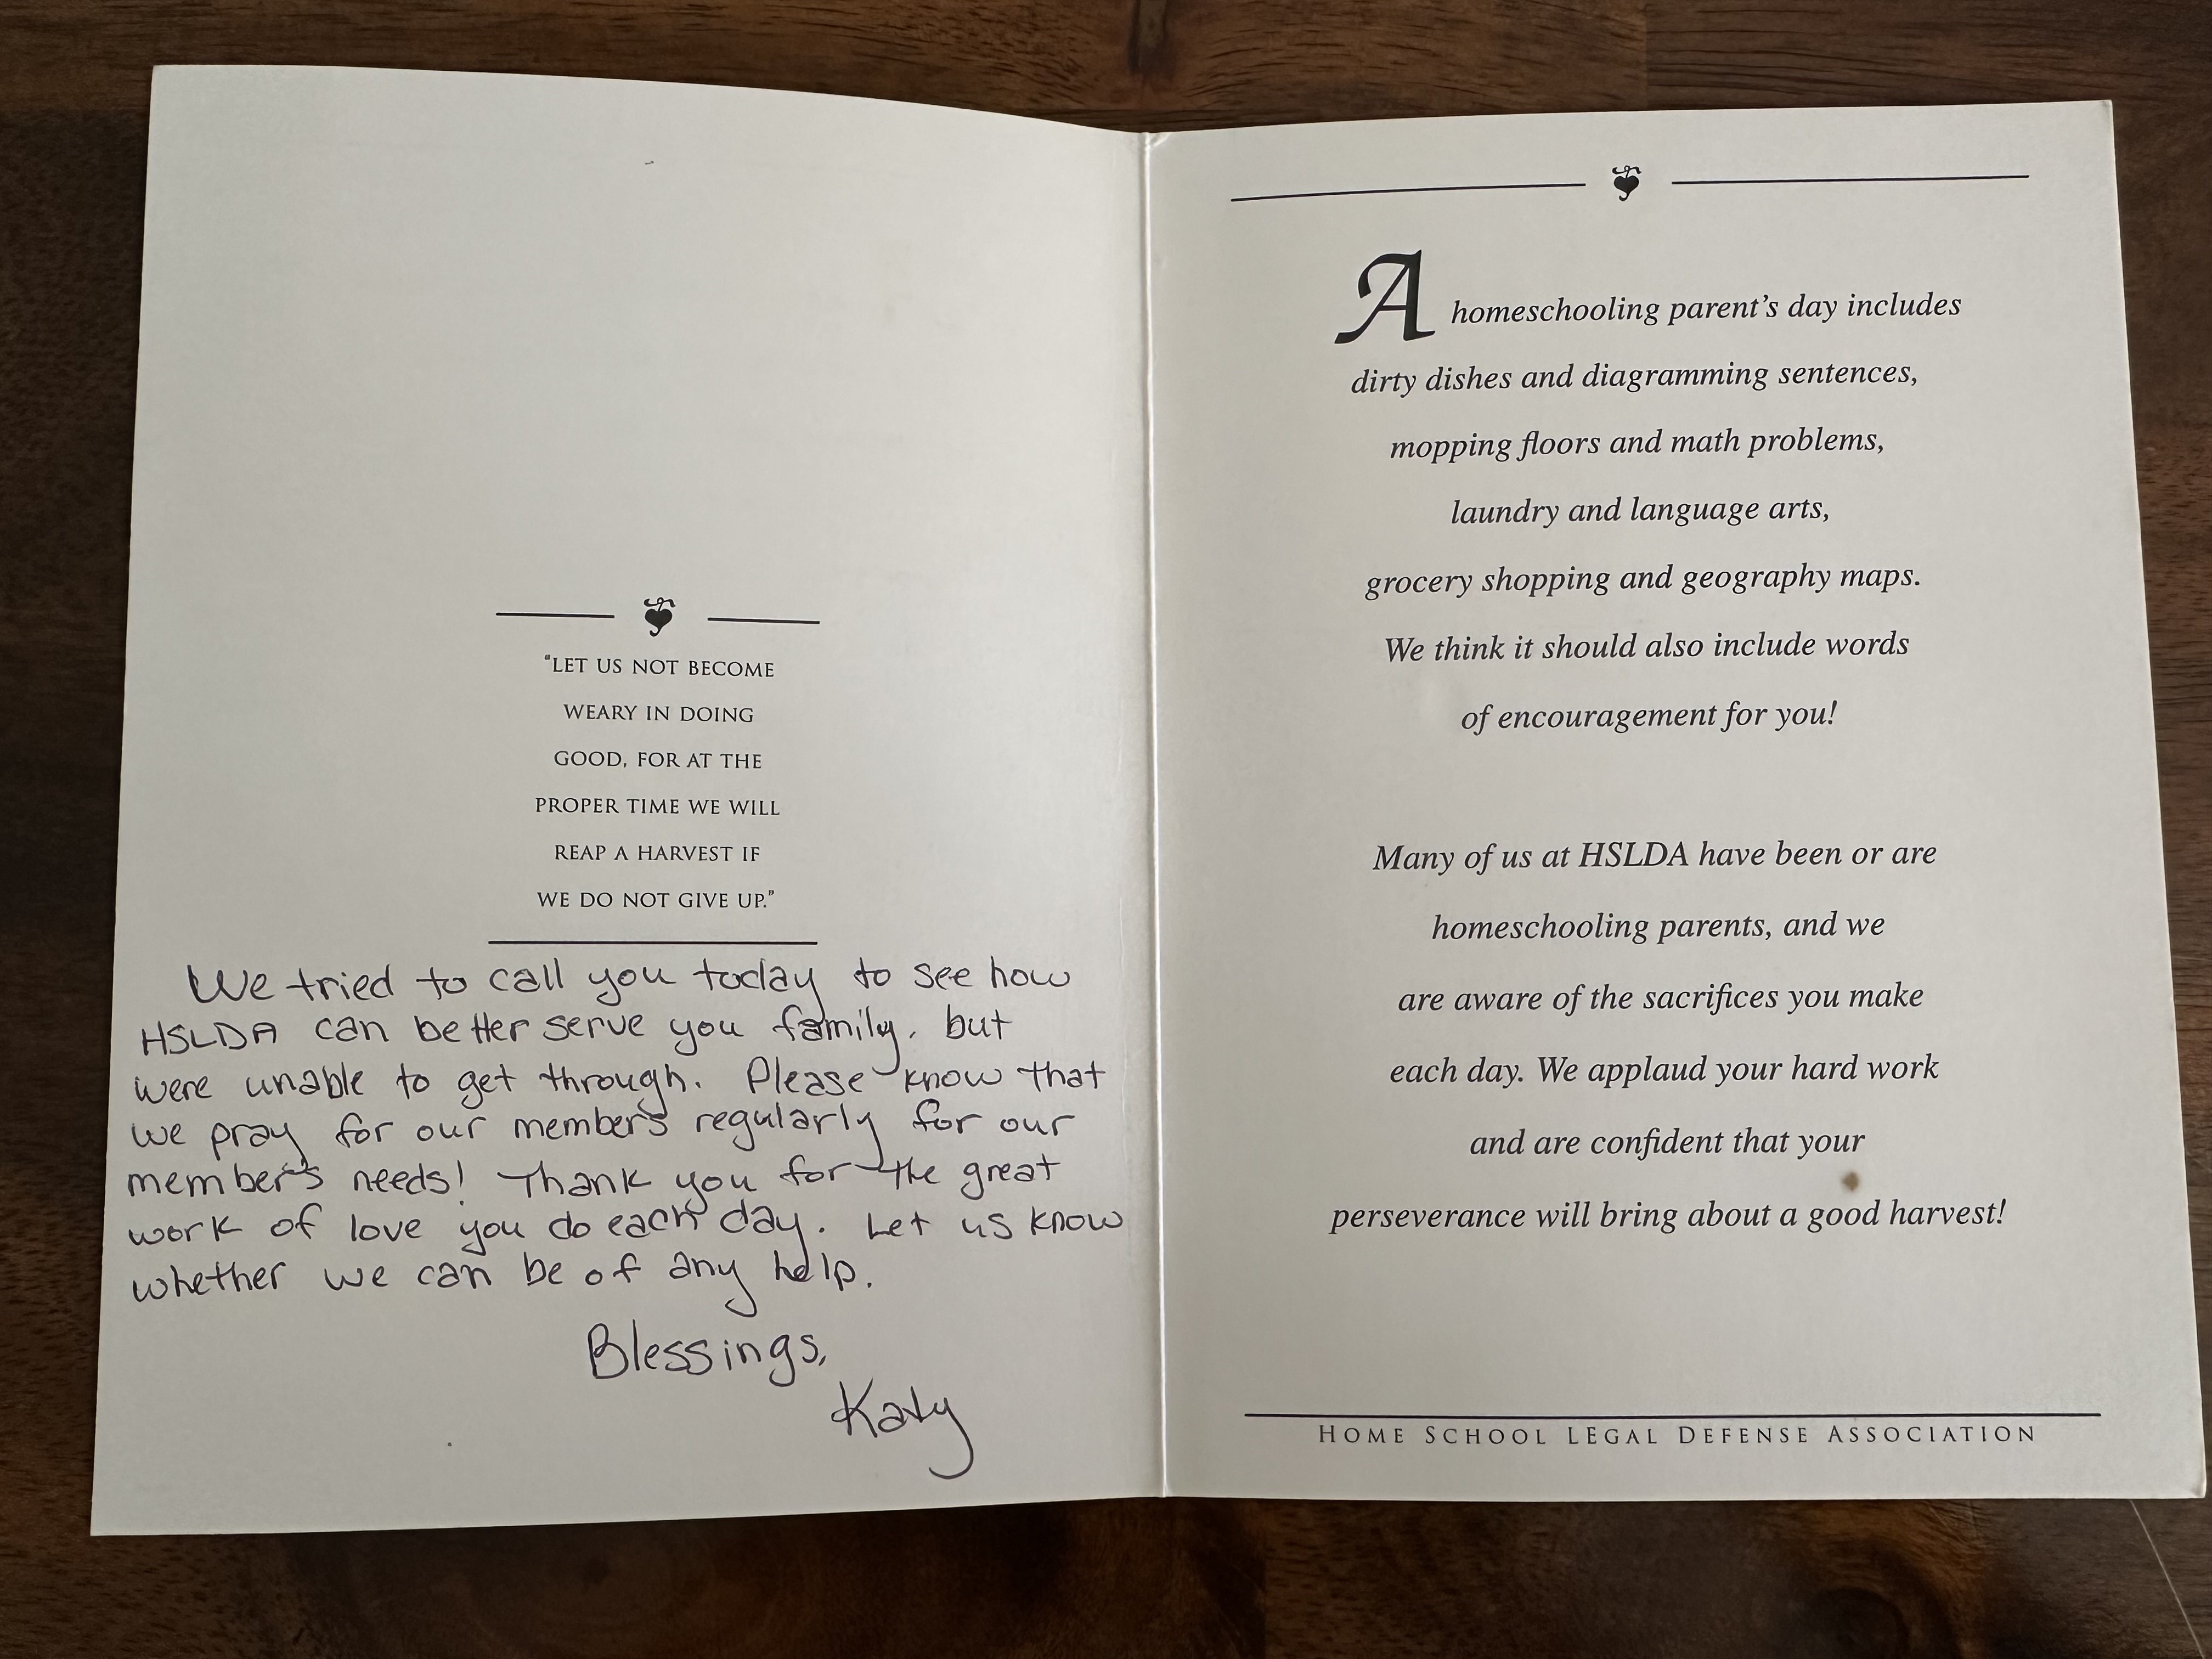 “LET US NOT BECOME
WEARY IN DOING
GOOD, FOR AT THE
PROPER TIME WE WILL
REAP A HARVEST IF
WE DO NOT GIVE UP.”
We tried to call you today to see how
HSLDA can better serve you family, but
were unable to get through. Please know that
we pray for our members regularly for our
member's needs! Thank you for the great
work of love you do each day. Let us know
whether we can be of any help.
Blessings,
Katy
A homeschooling parent’s day includes
dirty dishes and diagramming sentences,
mopping floors and math problems,
laundry and language arts,
grocery shopping and geography maps.
We think it should also include words
of encouragement for you!
Many of us at HSLDA have been or are
homeschooling parents, and we
are aware of the sacrifices you make
each day. We applaud your hard work
and are confident that your
perseverance will bring about a good harvest!
HOME SCHOOL LEGAL DEFENSE ASSOCIATION